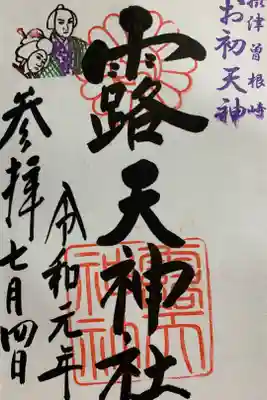 摂津曽根崎
お初天神
露天神社
令和元年
七月四日
参拝